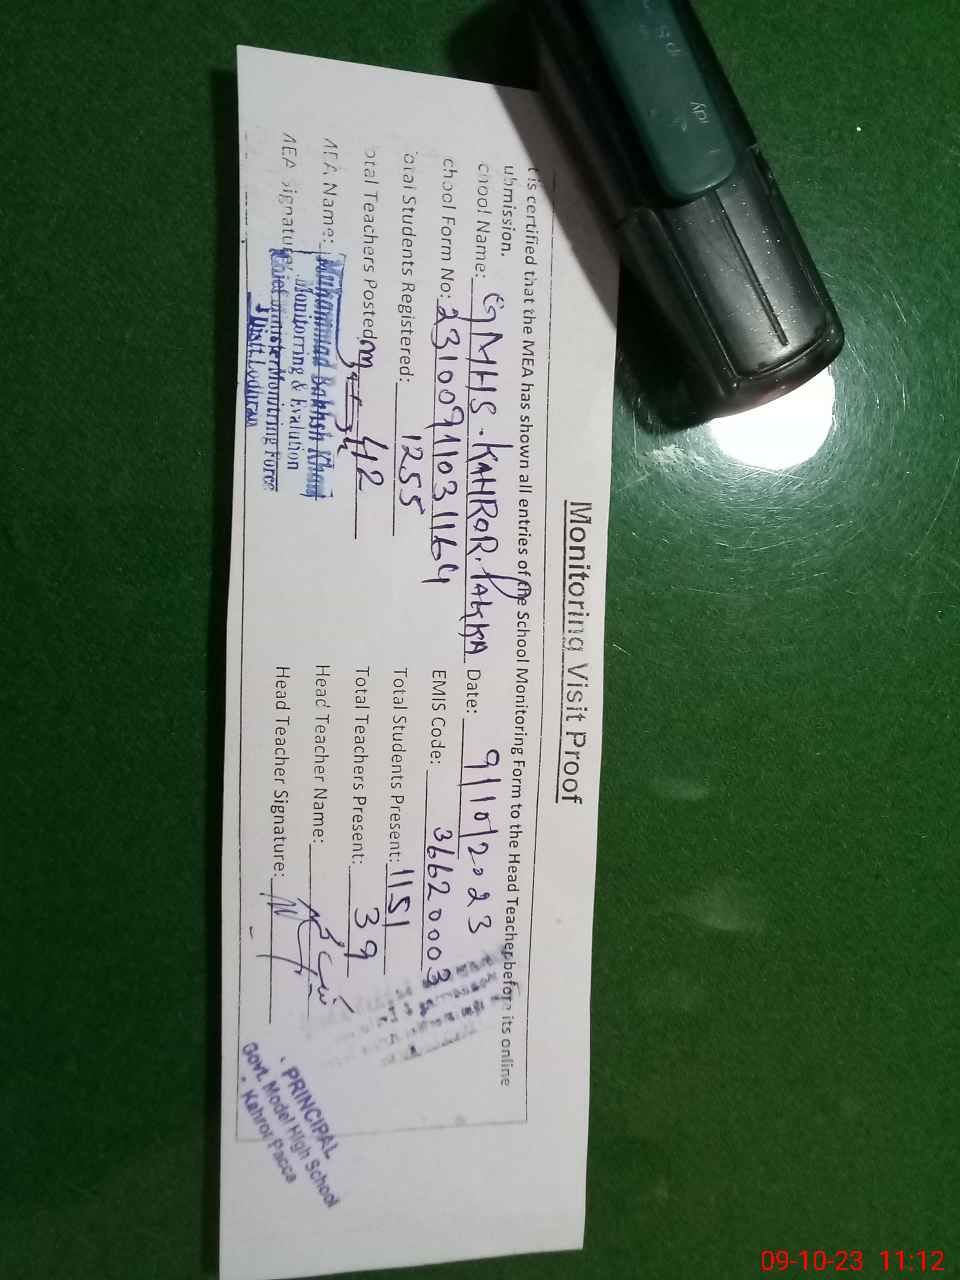 Monitoring Visit Proof
t is certified that the MEA has shown all entries of the School Monitoring Form to the Head Teacher before its online
ubmission.
chool Name: GMHS. KAHROR. PAKKA Date: 9/10/2023
chool Form No: 23100911031164 EMIS Code: 36620003
otal Students Registered: 1255 Total Students Present: 1151
otal Teachers Posted: 42 Total Teachers Present: 39
MEA Name: Muhammad Bakhsh Khan Head Teacher Name:
MEA Signature: Head Teacher Signature:
Monitorring & Evalution
Chief Minister Monitring Force
Distt. Lodhran
PRINCIPAL
Govt. Model High School
Kahror Pacca
09-10-23 11:12